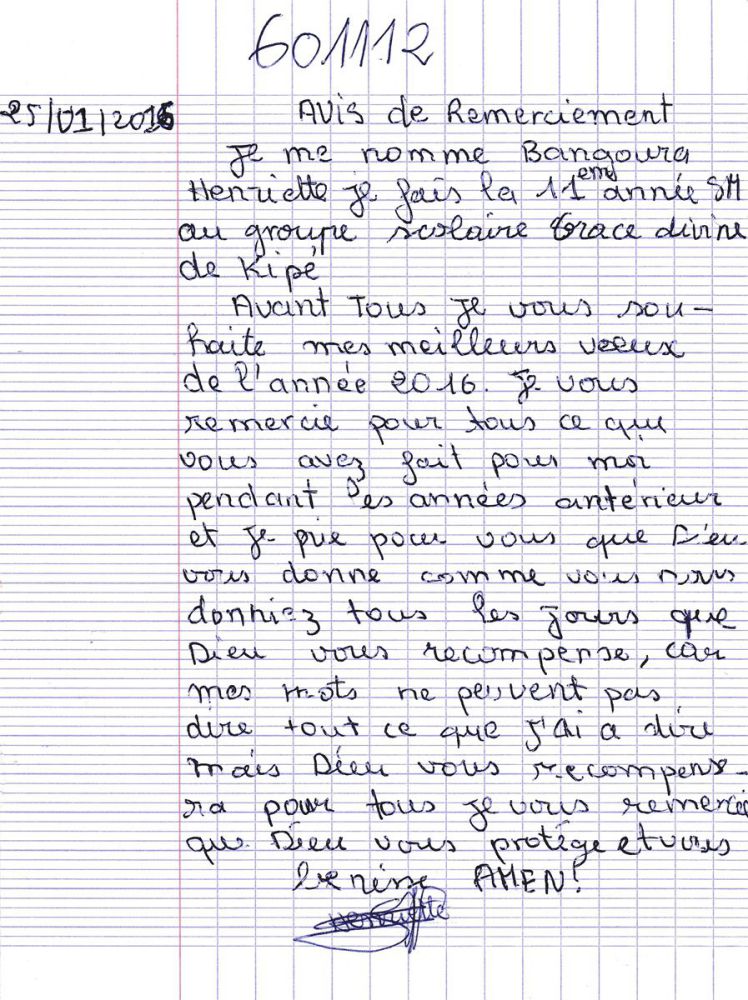 601112
25/01/2016 Avis de Remerciement
Je me nomme Bangoura
Henriette je fais la 11eme année SM
au groupe scolaire Grace divine
de Kipé
Avant Tous je vous sou-
haite mes meilleurs voeux
de l'année 2016. Je vous
remercie pour tous ce que
vous avez fait pour moi
pendant les années antérieur
et je prie pour vous que Dieu
vous donne comme vous nous
donniez tous les jours que
Dieu vous recompense, car
mes mots ne peuvent pas
dire tout ce que j'ai a dire
mais Dieu vous recompens-
ra pour tous je vous remercie
que Dieu vous protége et vous
benisse AMEN!
Henriette